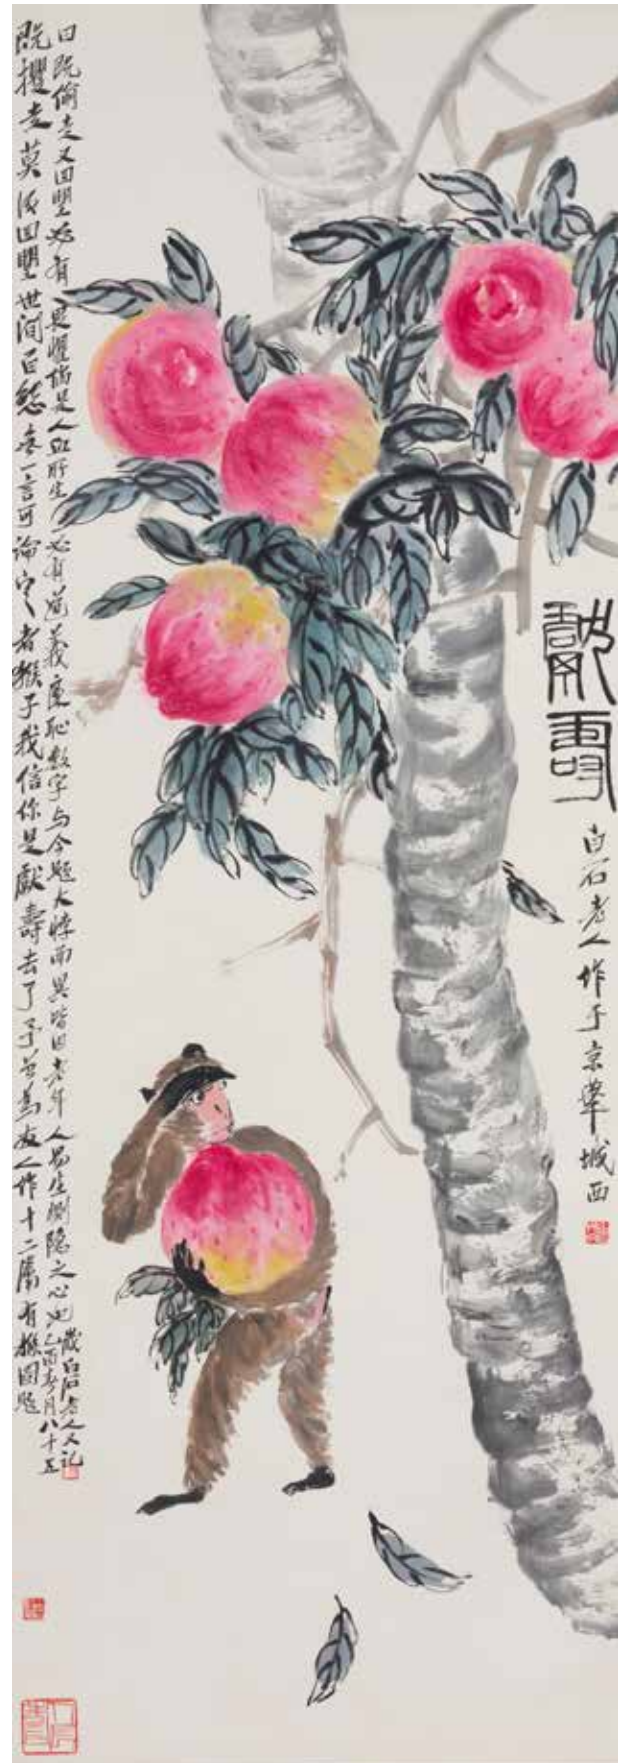 獻壽
白石老人作于京華城西
既攫走莫須回望世间百態無一言可論定之者猴子我信你是獻壽去了予曾為友人作十二屬有猴圖題
曰既偷走又回望必有畏懼倘是人血所生必有道義廉恥數字与今題大悖而異皆因老年人易生惻隐之心也
乙酉春月八十五
歲白石老人又記